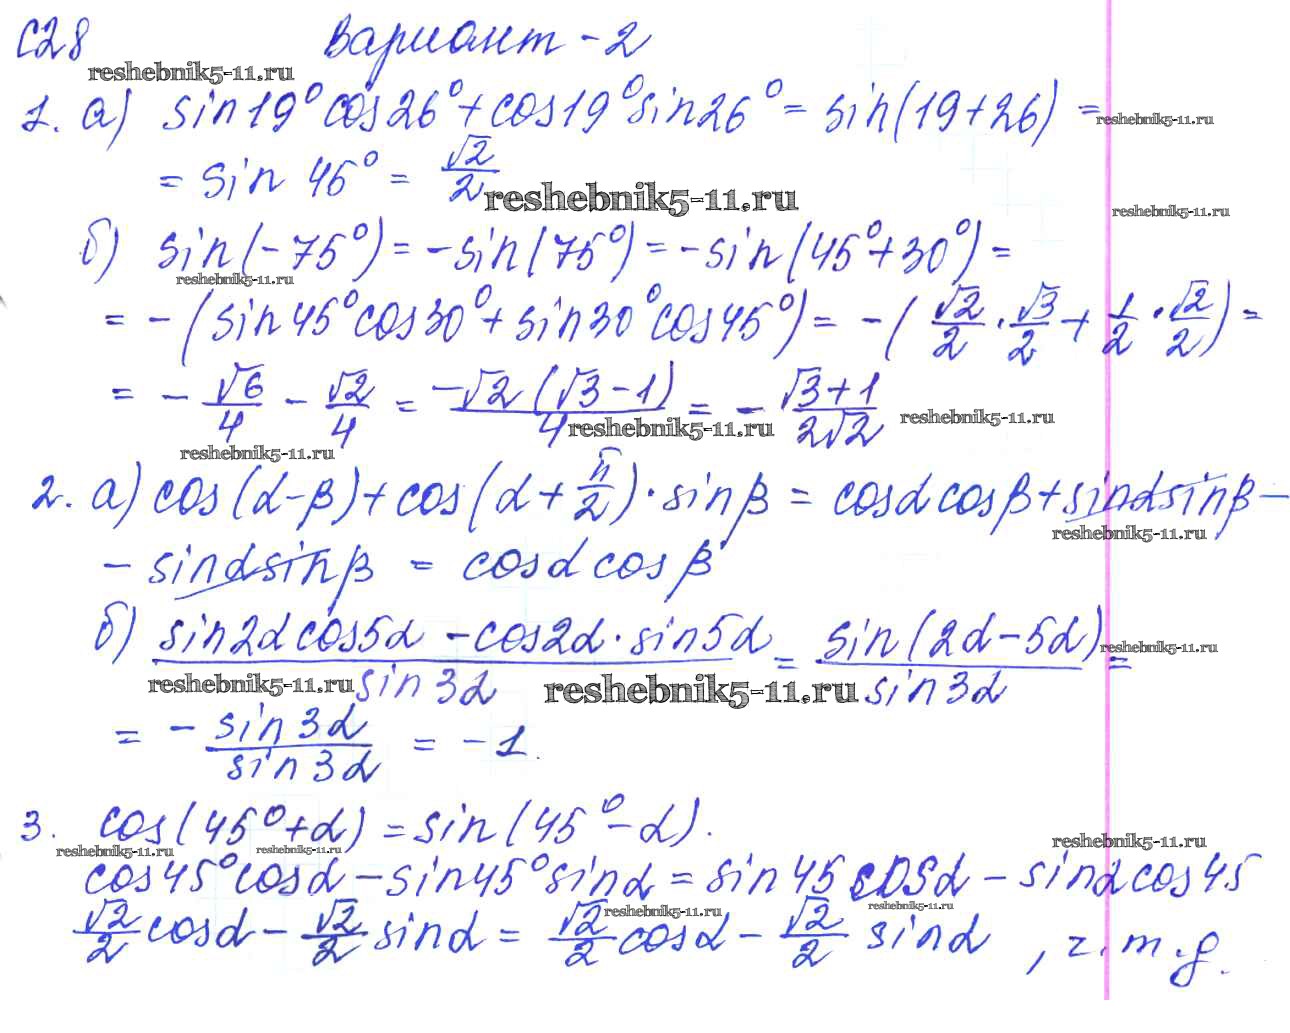 С28 Вариант - 2
reshebnik5-11.ru
1. а) sin19° cos26° + cos19° sin26° = sin(19+26) =
reshebnik5-11.ru
= sin 45° = √2/2
reshebnik5-11.ru
reshebnik5-11.ru
б) sin(-75°) = -sin(75°) = -sin(45°+30°) =
reshebnik5-11.ru
= -(sin45°cos30° + sin30°cos45°) = -(√2/2 · √3/2 + 1/2 · √2/2) =
= - √6/4 - √2/4 = -√2(√3-1)/4 = - √3+1/2√2
reshebnik5-11.ru
reshebnik5-11.ru
reshebnik5-11.ru
2. а) cos(α-β) + cos(α + π/2) · sinβ = cosα cosβ + sinα sinβ -
reshebnik5-11.ru
- sinα sinβ = cosα cos β
б) sin2α cos5α - cos2α · sin5α / sin3α = sin(2α-5α) / sin3α =
reshebnik5-11.ru
reshebnik5-11.ru
reshebnik5-11.ru
= - sin3α / sin3α = -1.
3. cos(45°+α) = sin(45°-α).
reshebnik5-11.ru
reshebnik5-11.ru
reshebnik5-11.ru
cos45°cosα - sin45°sinα = sin45 cosα - sinα cos45
reshebnik5-11.ru
reshebnik5-11.ru
√2/2 cosα - √2/2 sinα = √2/2 cosα - √2/2 sinα , ч.т.д.